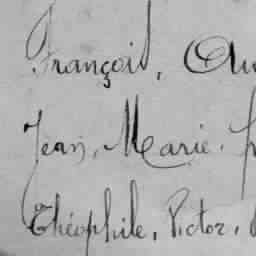 François, Au
Jean, Marie, f
Théophile, Victor,